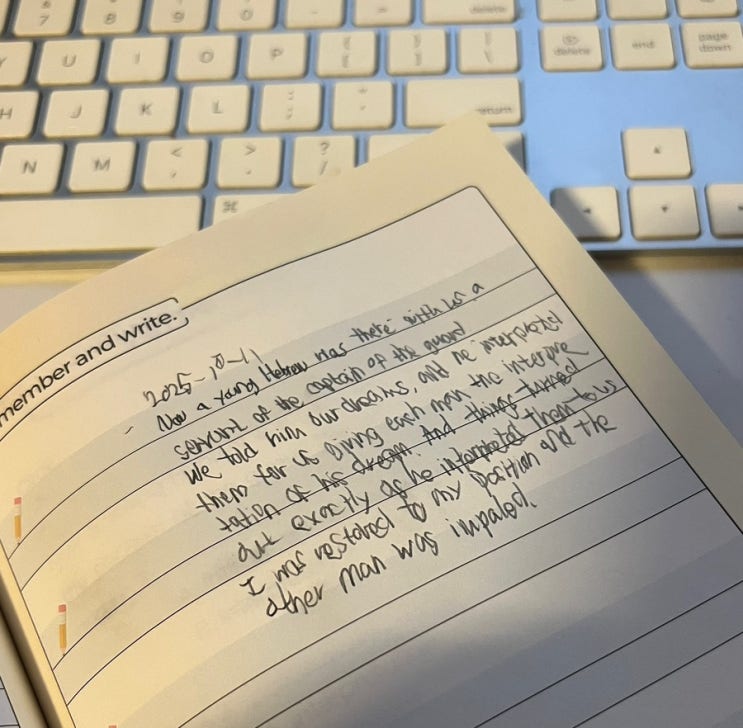 7 8 9 0 - = delete
U I O P { [ } ] | \ delete end page down
H J K L : ; " ' return
N M < , > . ? /
⌘
member and write.
2025-10-11
Now a Yang Hebrew was there with us a
servant of the captain of the guard
We told him our dreams, and he interpreted
them for us giving each man the interpre
tation of his dream And things turned
out exactly as he interpreted them to us
I was restored to my position and the
other man was impaled.